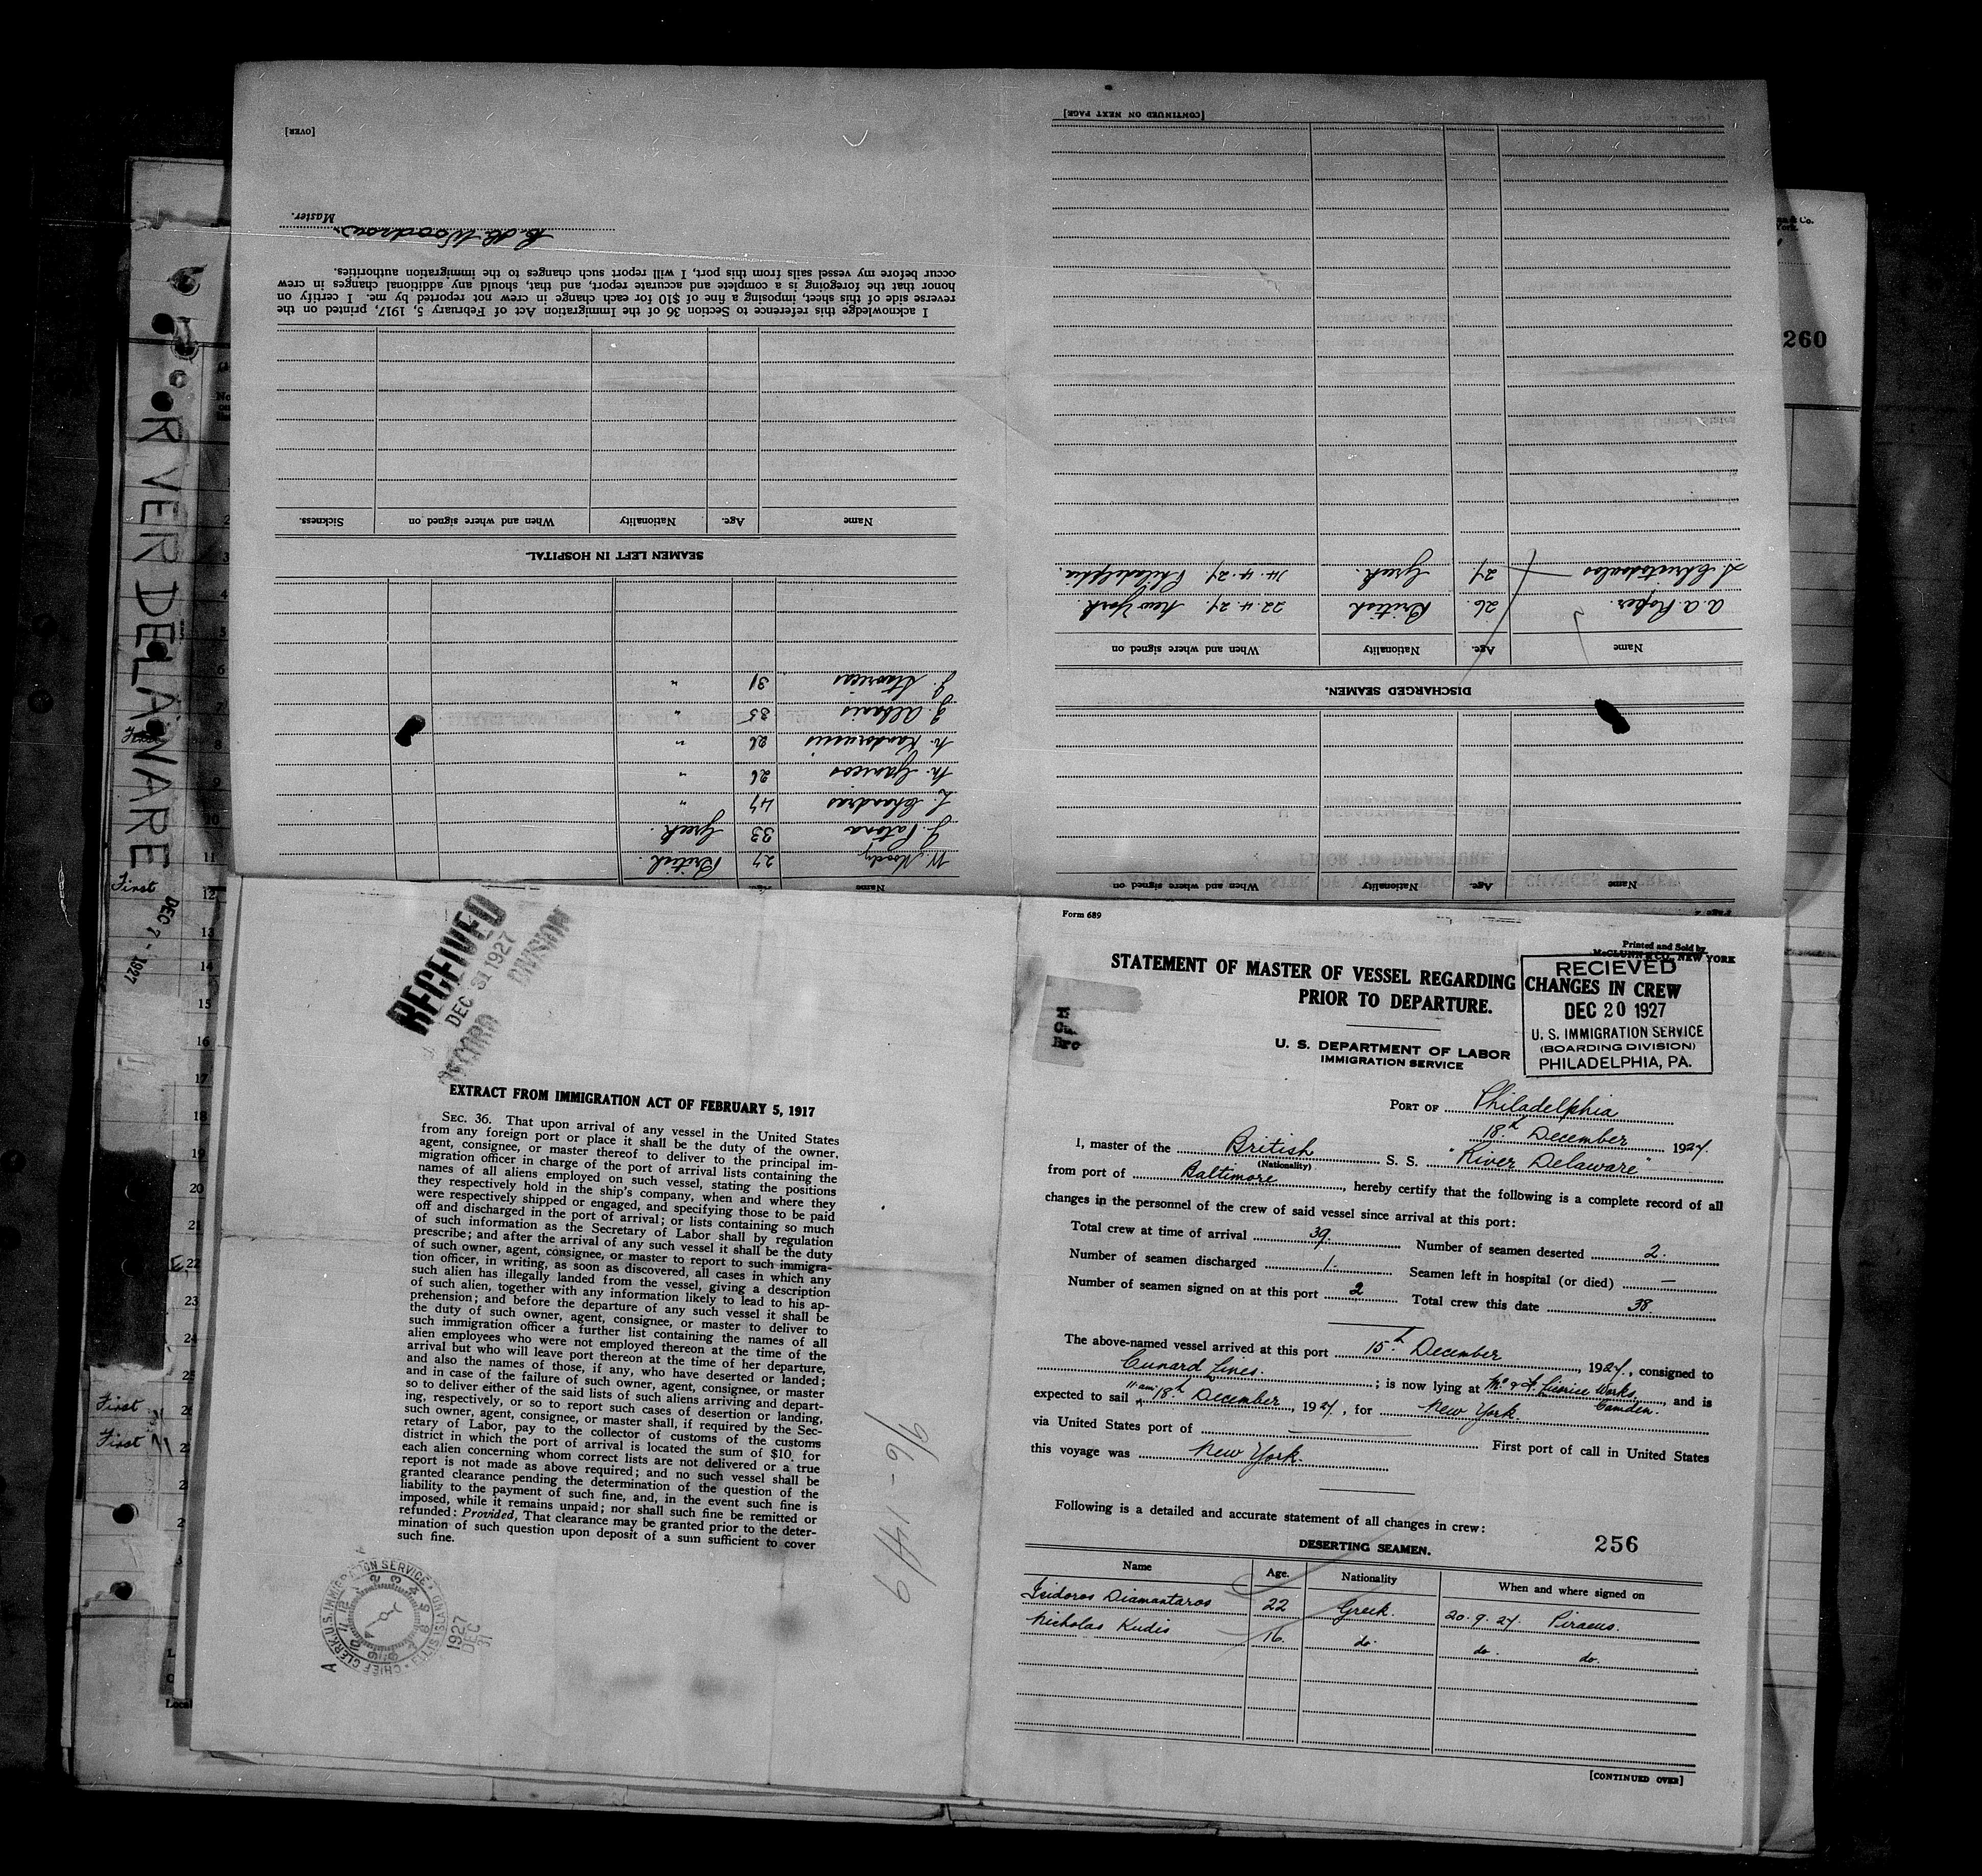 [OVER]
Master.
I acknowledge this reference to Section 36 of the Immigration Act of February 5, 1917, printed on the
reverse side of this sheet, imposing a fine of $10 for each change in crew not reported by me. I certify on
honor that the foregoing is a complete and accurate report, and that, should any additional changes in crew
occur before my vessel sails from this port, I will report such changes to the immigration authorities.
Name Age. Nationality When and where signed on Sickness.
SEAMEN LEFT IN HOSPITAL.
J. Stavricas 31 "
J. Albanis 35 "
26 "
M. Gancos 26 "
L. Chadrias 47 "
J. Patona 33 Greek.
W. Moody 27 British.
Name Age
[CONTINUED ON NEXT PAGE]
27 Greek. 14.4.27 Philadelphia.
A. A. Roper. 26. British 22.4.27. New York.
Name Age. Nationality When and where signed on
DISCHARGED SEAMEN.
Name Age. Nationality When and where signed on
260
RIVER DELAWARE
DEC 7 - 1927
First
First
First
RECEIVED
DEC 31 1927
RECORD DIVISION
EXTRACT FROM IMMIGRATION ACT OF FEBRUARY 5, 1917
SEC. 36. That upon arrival of any vessel in the United States
from any foreign port or place it shall be the duty of the owner,
agent, consignee, or master thereof to deliver to the principal im-
migration officer in charge of the port of arrival lists containing the
names of all aliens employed on such vessel, stating the positions
they respectively hold in the ship's company, when and where they
were respectively shipped or engaged, and specifying those to be paid
off and discharged in the port of arrival; or lists containing so much
of such information as the Secretary of Labor shall by regulation
prescribe; and after the arrival of any such vessel it shall be the duty
of such owner, agent, consignee, or master to report to such immigra-
tion officer, in writing, as soon as discovered, all cases in which any
such alien has illegally landed from the vessel, giving a description
of such alien, together with any information likely to lead to his ap-
prehension; and before the departure of any such vessel it shall be
the duty of such owner, agent, consignee, or master to deliver to
such immigration officer a further list containing the names of all
alien employees who were not employed thereon at the time of the
arrival but who will leave port thereon at the time of her departure,
and also the names of those, if any, who have deserted or landed;
and in case of the failure of such owner, agent, consignee, or master
so to deliver either of the said lists of such aliens arriving and depart-
ing, respectively, or so to report such cases of desertion or landing,
such owner, agent, consignee, or master shall, if required by the Sec-
retary of Labor, pay to the collector of customs of the customs
district in which the port of arrival is located the sum of $10 for
each alien concerning whom correct lists are not delivered or a true
report is not made as above required; and no such vessel shall be
granted clearance pending the determination of the question of the
liability to the payment of such fine, and, in the event such fine is
imposed, while it remains unpaid; nor shall such fine be remitted or
refunded: Provided, That clearance may be granted prior to the deter-
mination of such question upon deposit of a sum sufficient to cover
such fine.
CHIEF CLERK, U.S. IMMIGRATION SERVICE
ELLIS ISLAND
1927
DEC
31
Form 689
Printed and Sold by
McCLUNN & CO., NEW YORK
STATEMENT OF MASTER OF VESSEL REGARDING CHANGES IN CREW
PRIOR TO DEPARTURE.
U. S. DEPARTMENT OF LABOR
IMMIGRATION SERVICE
RECIEVED
DEC 20 1927
U. S. IMMIGRATION SERVICE
(BOARDING DIVISION)
PHILADELPHIA, PA.
PORT OF Philadelphia
18th December 1927.
I, master of the British S. S. "River Delaware"
(Nationality)
from port of Baltimore, hereby certify that the following is a complete record of all
changes in the personnel of the crew of said vessel since arrival at this port:
Total crew at time of arrival 39. Number of seamen deserted 2.
Number of seamen discharged 1. Seamen left in hospital (or died) —
Number of seamen signed on at this port 2 Total crew this date 38.
The above-named vessel arrived at this port 15th December, 1927., consigned to
Cunard Lines. ; is now lying at Mc & F. Licorice Works, Camden. and is
expected to sail 11 am 18th December, 1927, for New York.
via United States port of First port of call in United States
this voyage was New York.
Following is a detailed and accurate statement of all changes in crew:
256
DESERTING SEAMEN.
Name Age. Nationality When and where signed on
Isidoros Diamantaros 22 Greek. 20.9.27. Piraeus.
Nicholas Kudis 16. do. do. do.
[CONTINUED OVER]